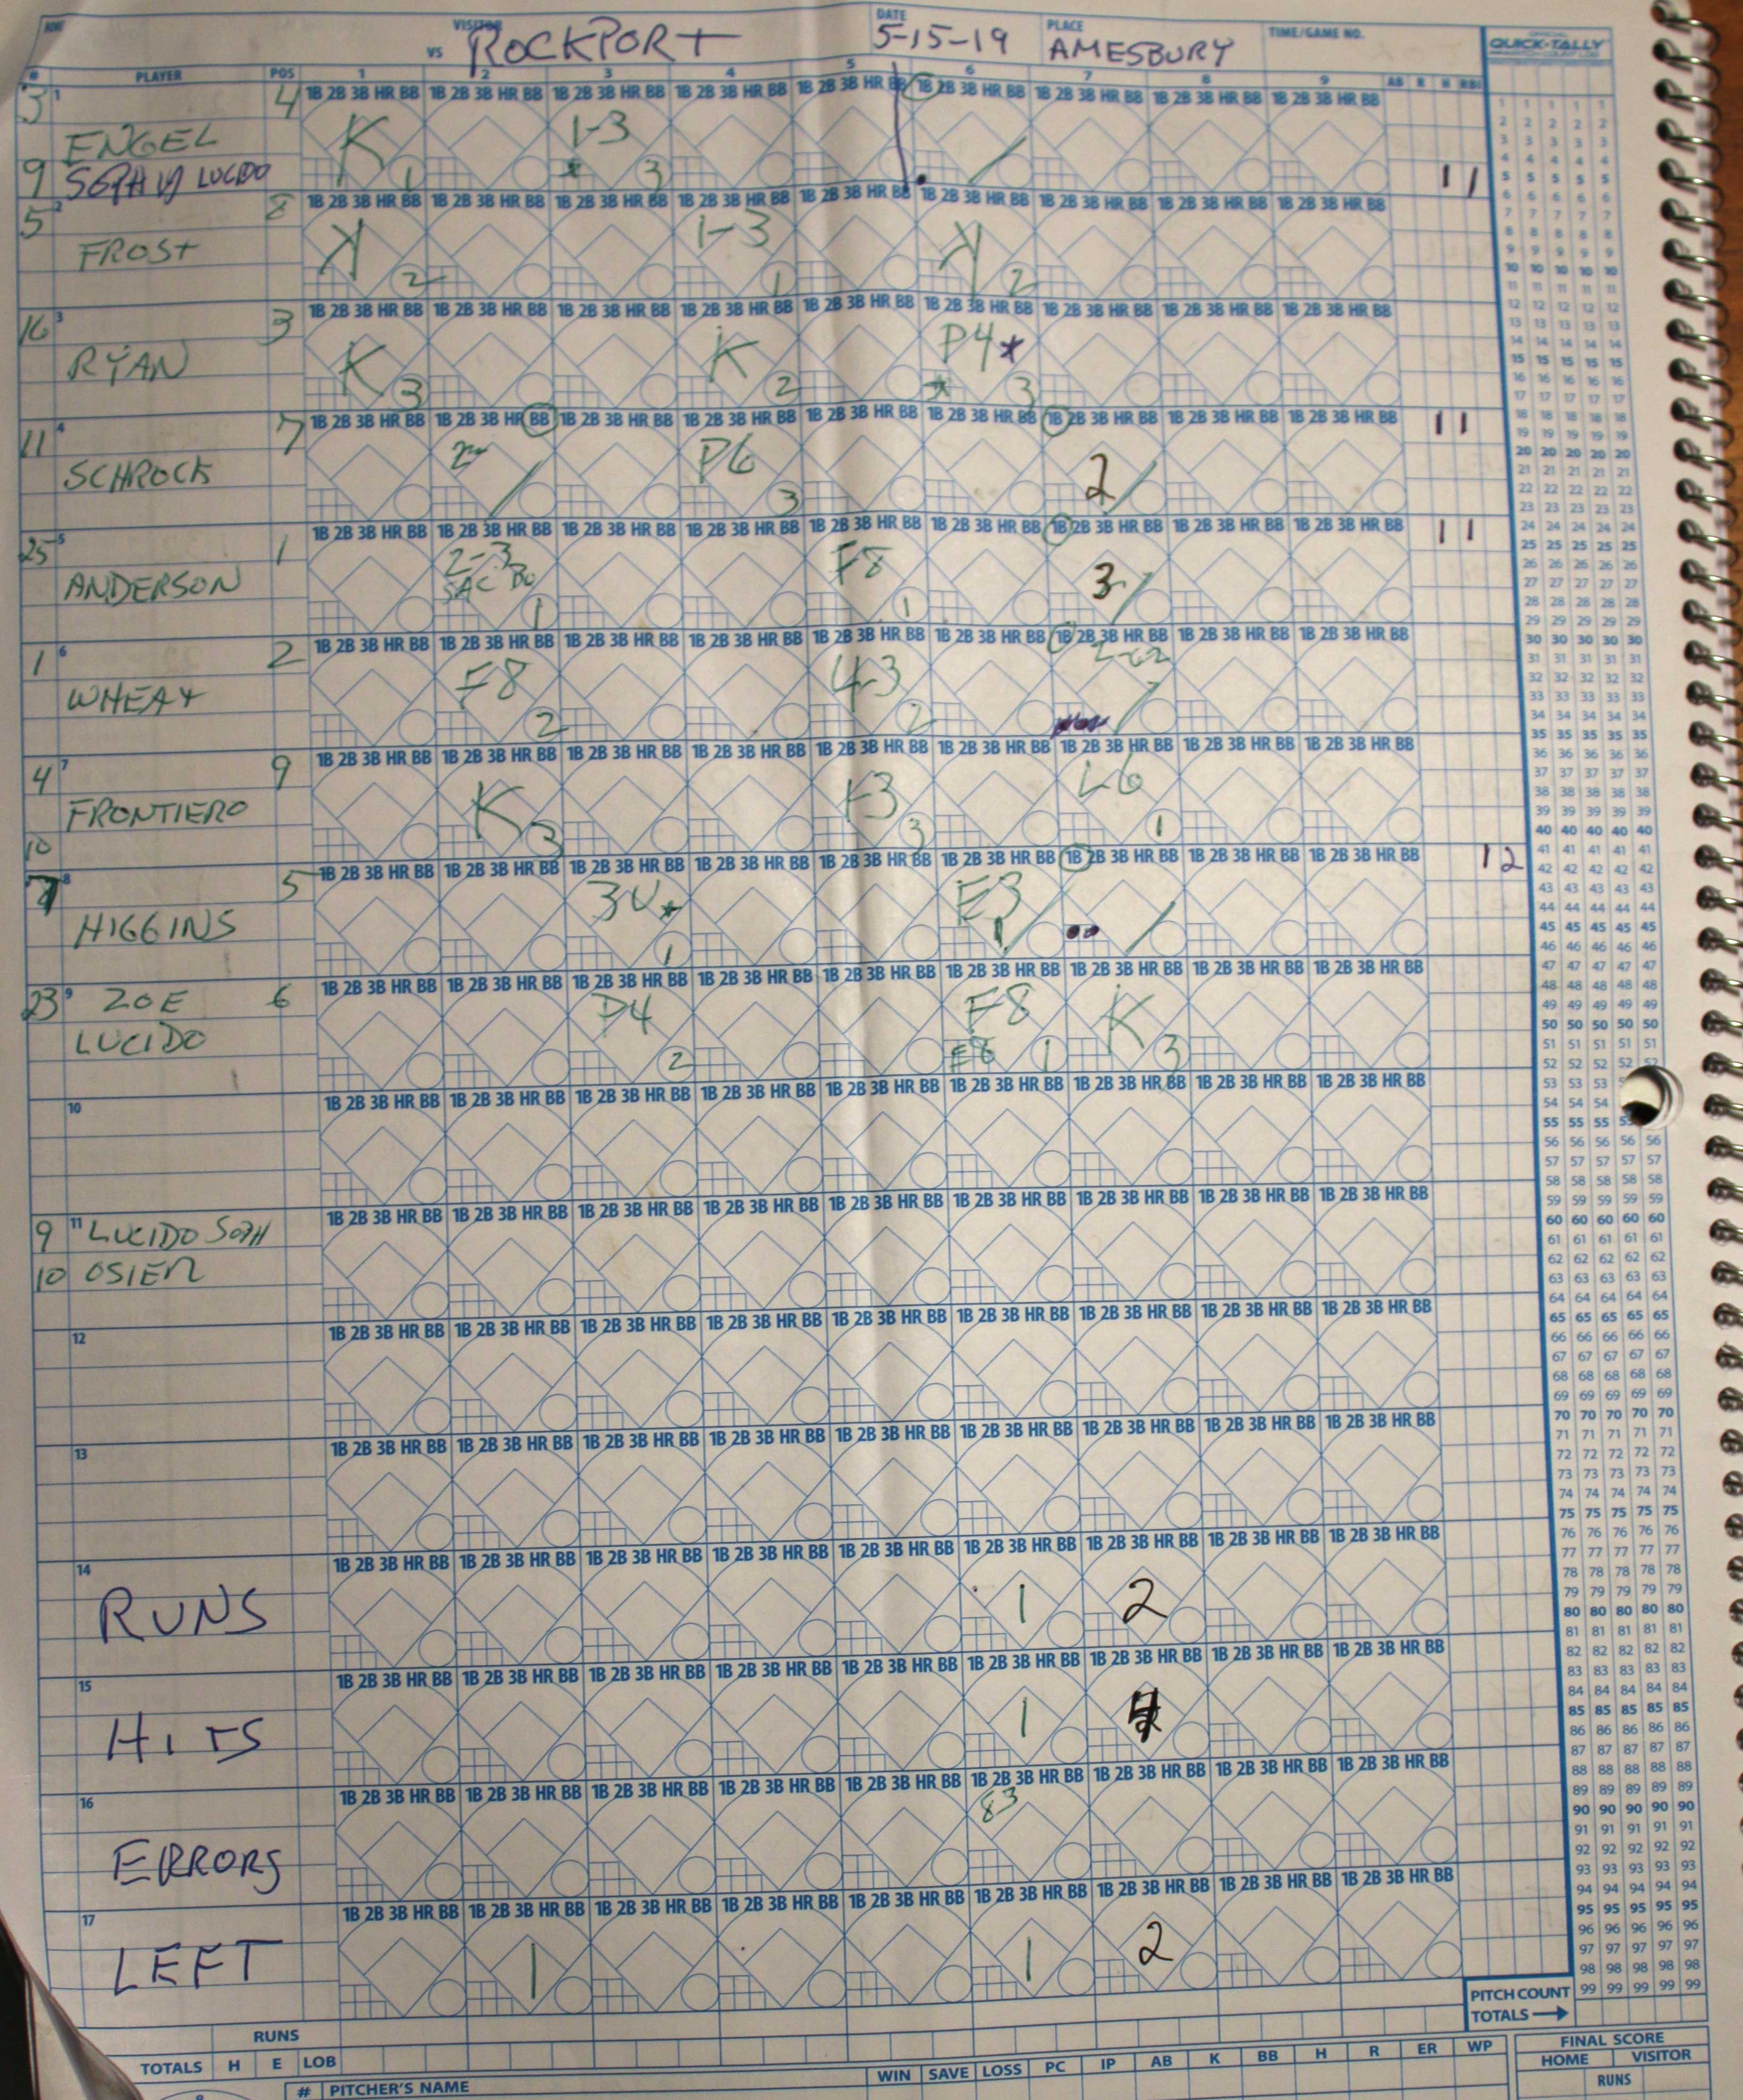 VISITOR
VS ROCKPORT
DATE 5-15-19
PLACE AMESBURY
TIME/GAME NO.
OFFICIAL
QUICK-TALLY
# PLAYER POS 1 2 3 4 5 6 7 8 9 AB R H RBI
1B 2B 3B HR BB 1B 2B 3B HR BB 1B 2B 3B HR BB 1B 2B 3B HR BB 1B 2B 3B HR BB 1B 2B 3B HR BB 1B 2B 3B HR BB 1B 2B 3B HR BB 1B 2B 3B HR BB
3 1 ENGEL 4 K 1 1-3 3
9 SOPHY LUCIDO 1 1
5 2 FROST 8 K 2 1-3 1 K 2
16 3 RYAN 3 K 3 K 2 P4* 3
11 4 SCHROCK 7 P6 3 2 1 1
25 5 ANDERSON 1 2-3 SAC BU 1 F8 1 3 1 1
1 6 WHEAT 2 F8 2 4-3 2
4 7 FRONTIERO 9 K 3 1-3 3 L6 1
10
7 8 HIGGINS 5 3U* 1 E3 1 2
23 9 ZOE 6 P4 2 F8 E8 1 K 3
LUCIDO
10
9 11 LUCIDO SOPH
10 OSIER
12
13
14 RUNS 1 2
15 HITS 1 4
16 ERRORS 83
17 LEFT 1 1 2
PITCH COUNT
TOTALS
RUNS
TOTALS H E LOB
# PITCHER'S NAME WIN SAVE LOSS PC IP AB K BB H R ER WP
FINAL SCORE
HOME VISITOR
RUNS